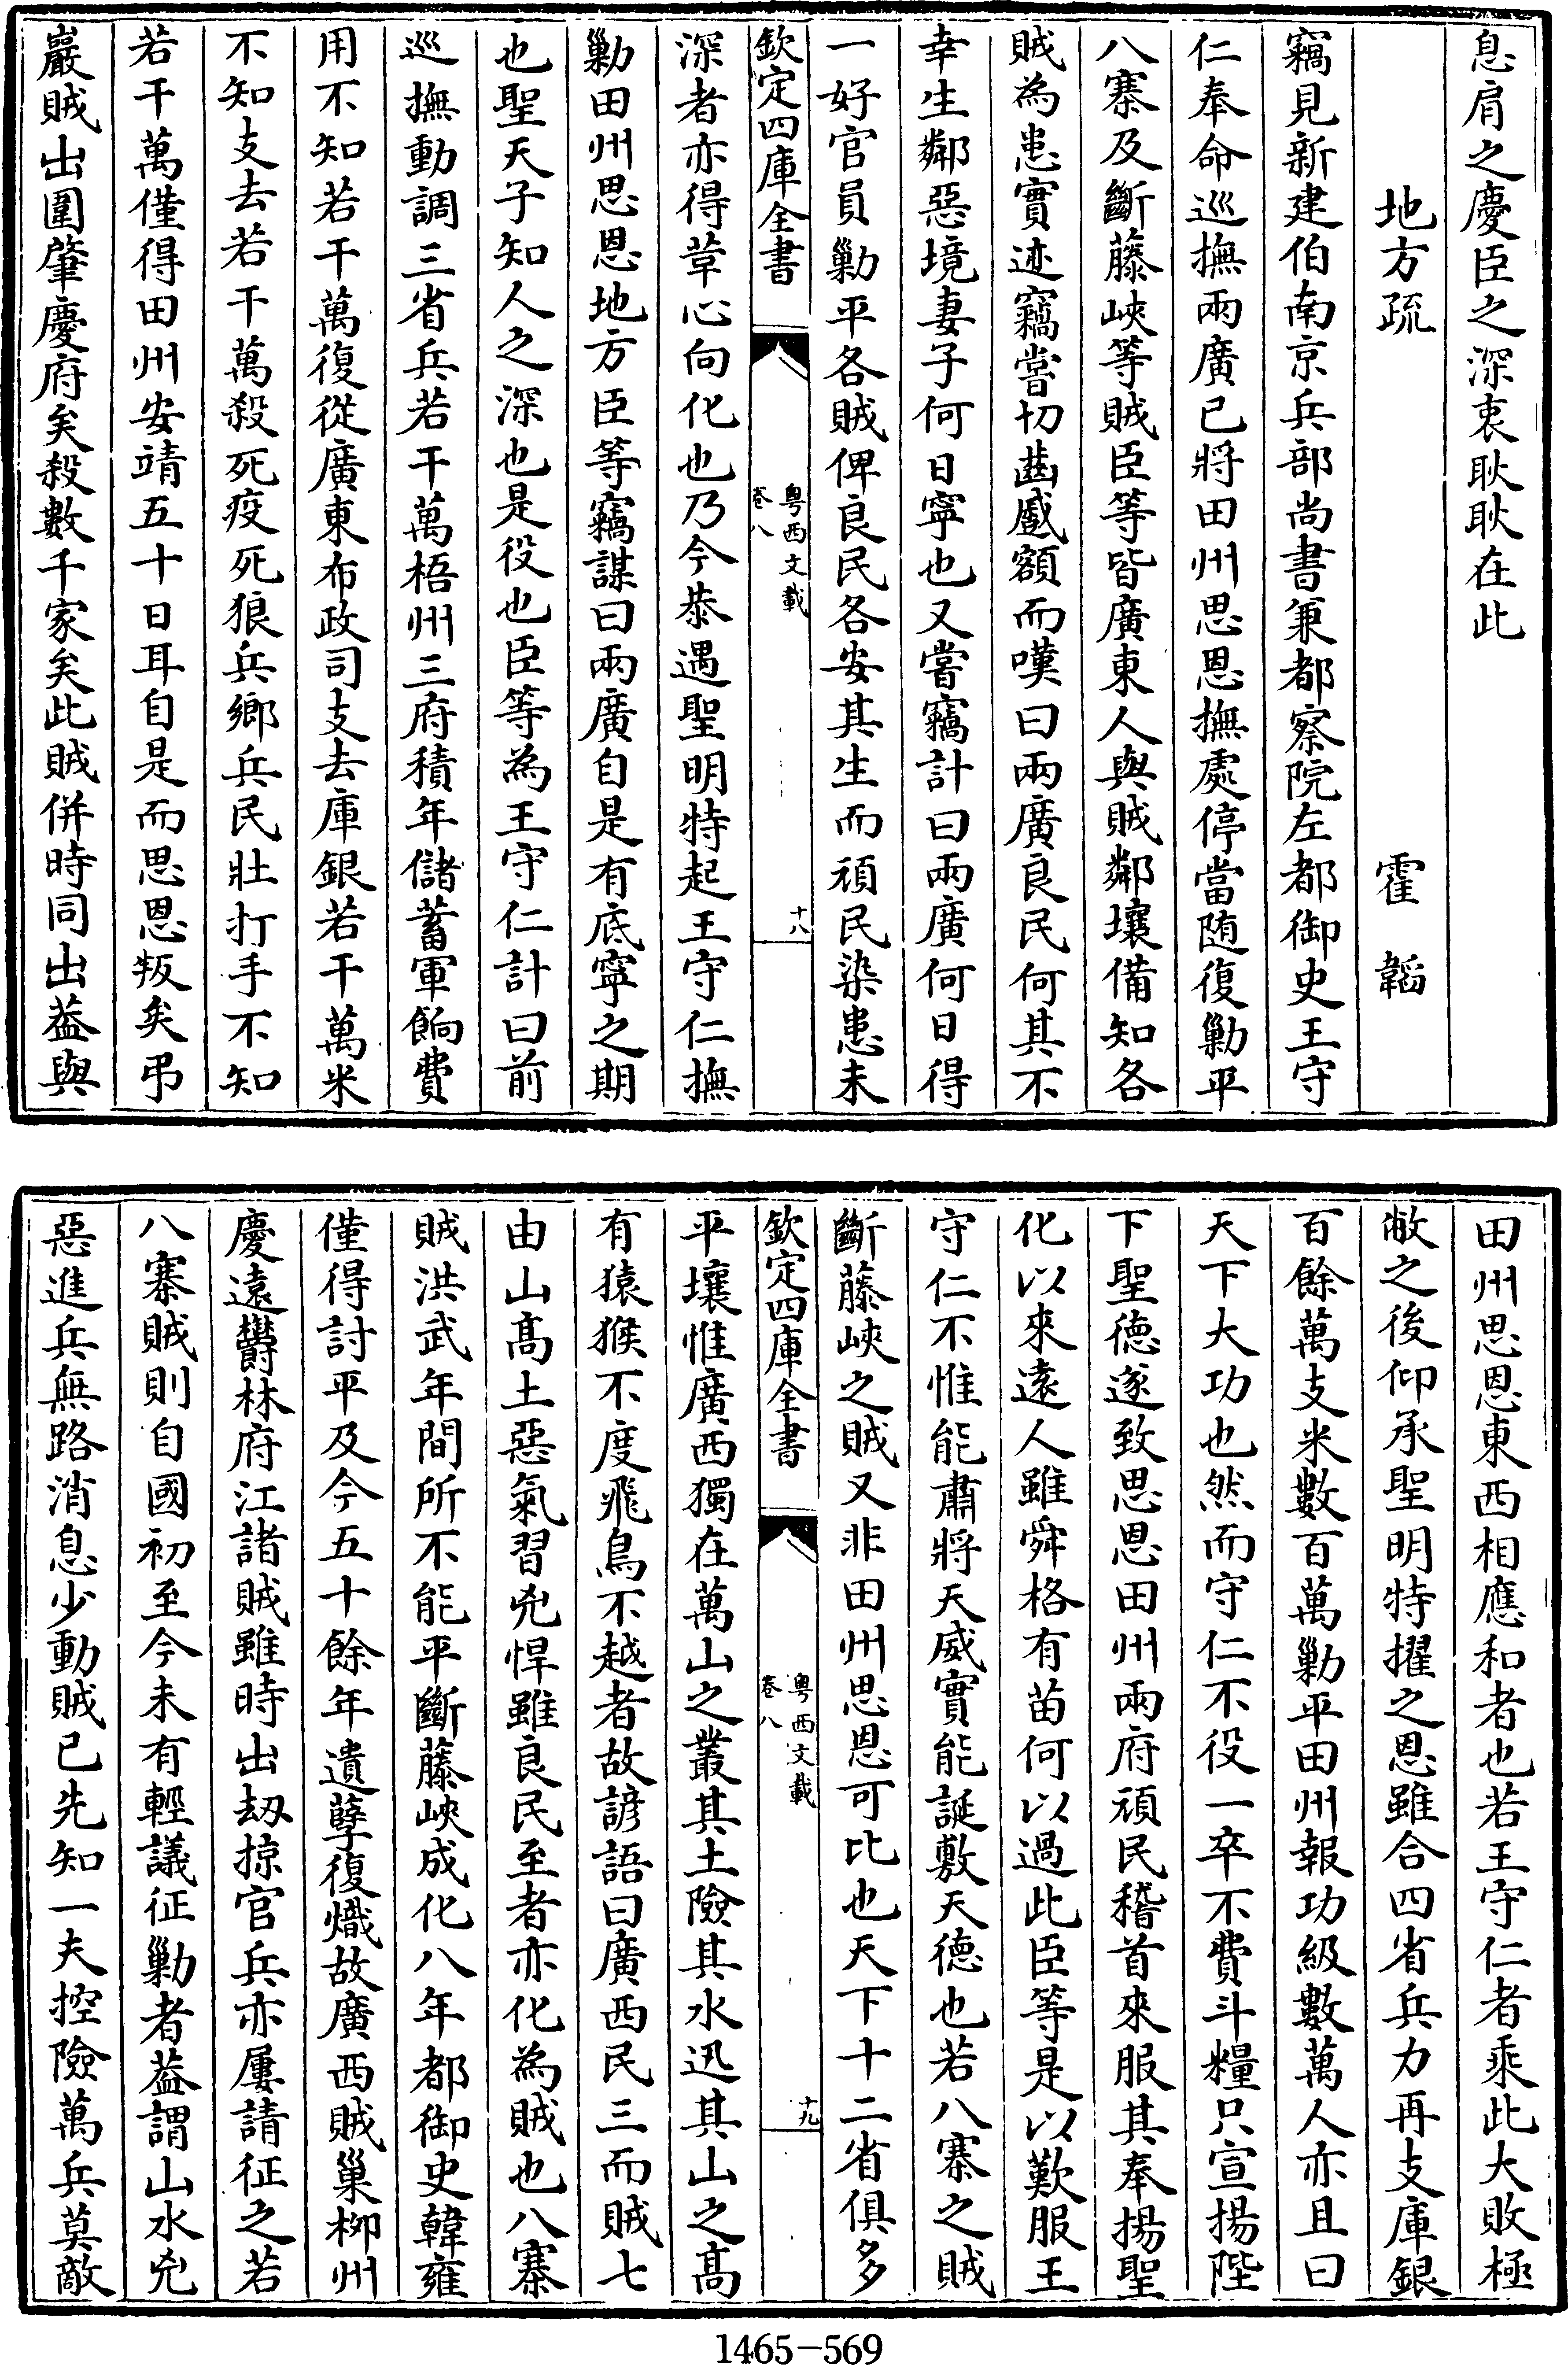 息肩之慶臣之深衷耿耿在此
地方疏　霍韜
竊見新建伯南京兵部尚書兼都察院左都御史王守
仁奉命巡撫兩廣已將田州思恩撫處停當随復勦平
八寨及斷藤峽等賊臣等皆廣東人與賊鄰壤備知各
賊為患實迹竊嘗切齒蹙額而嘆曰兩廣良民何其不
幸生鄰惡境妻子何日寧也又嘗竊計曰兩廣何日得
一好官員勦平各賊俾良民各安其生而頑民染患未
欽定四庫全書
粤西文載
卷八
十八
深者亦得革心向化也乃今恭遇聖明特起王守仁撫
勦田州思恩地方臣等竊謀曰兩廣自是有底寧之期
也聖天子知人之深也是役也臣等為王守仁計曰前
巡撫動調三省兵若干萬梧州三府積年儲蓄軍餉費
用不知若干萬復從廣東布政司支去庫銀若干萬米
不知支去若干萬殺死疫死狼兵鄉兵民壯打手不知
若干萬僅得田州安靖五十日耳自是而思恩叛矣弔
巖賊出圍肇慶府矣殺數千家矣此賊併時同出葢與
田州思恩東西相應和者也若王守仁者乘此大敗極
敝之後仰承聖明特擢之恩雖合四省兵力再支庫銀
百餘萬支米數百萬勦平田州報功級數萬人亦且曰
天下大功也然而守仁不役一卒不費斗糧只宣揚陛
下聖德遂致思恩田州兩府頑民稽首來服其奉揚聖
化以來遠人雖舜格有苗何以過此臣等是以歎服王
守仁不惟能肅將天威實能誕敷天德也若八寨之賊
斷藤峽之賊又非田州思恩可比也天下十二省俱多
欽定四庫全書
粤西文載
卷八
十九
平壤惟廣西獨在萬山之叢其土險其水迅其山之髙
有猿猴不度飛鳥不越者故諺語曰廣西民三而賊七
由山髙土惡氣習兇悍雖良民至者亦化為賊也八寨
賊洪武年間所不能平斷藤峽成化八年都御史韓雍
僅得討平及今五十餘年遺孽復熾故廣西賊巢柳州
慶遠鬱林府江諸賊雖時出刼掠官兵亦屢請征之若
八寨賊則自國初至今未有輕議征勦者葢謂山水兇
惡進兵無路消息少動賊已先知一夫控險萬兵莫敵
1465-569